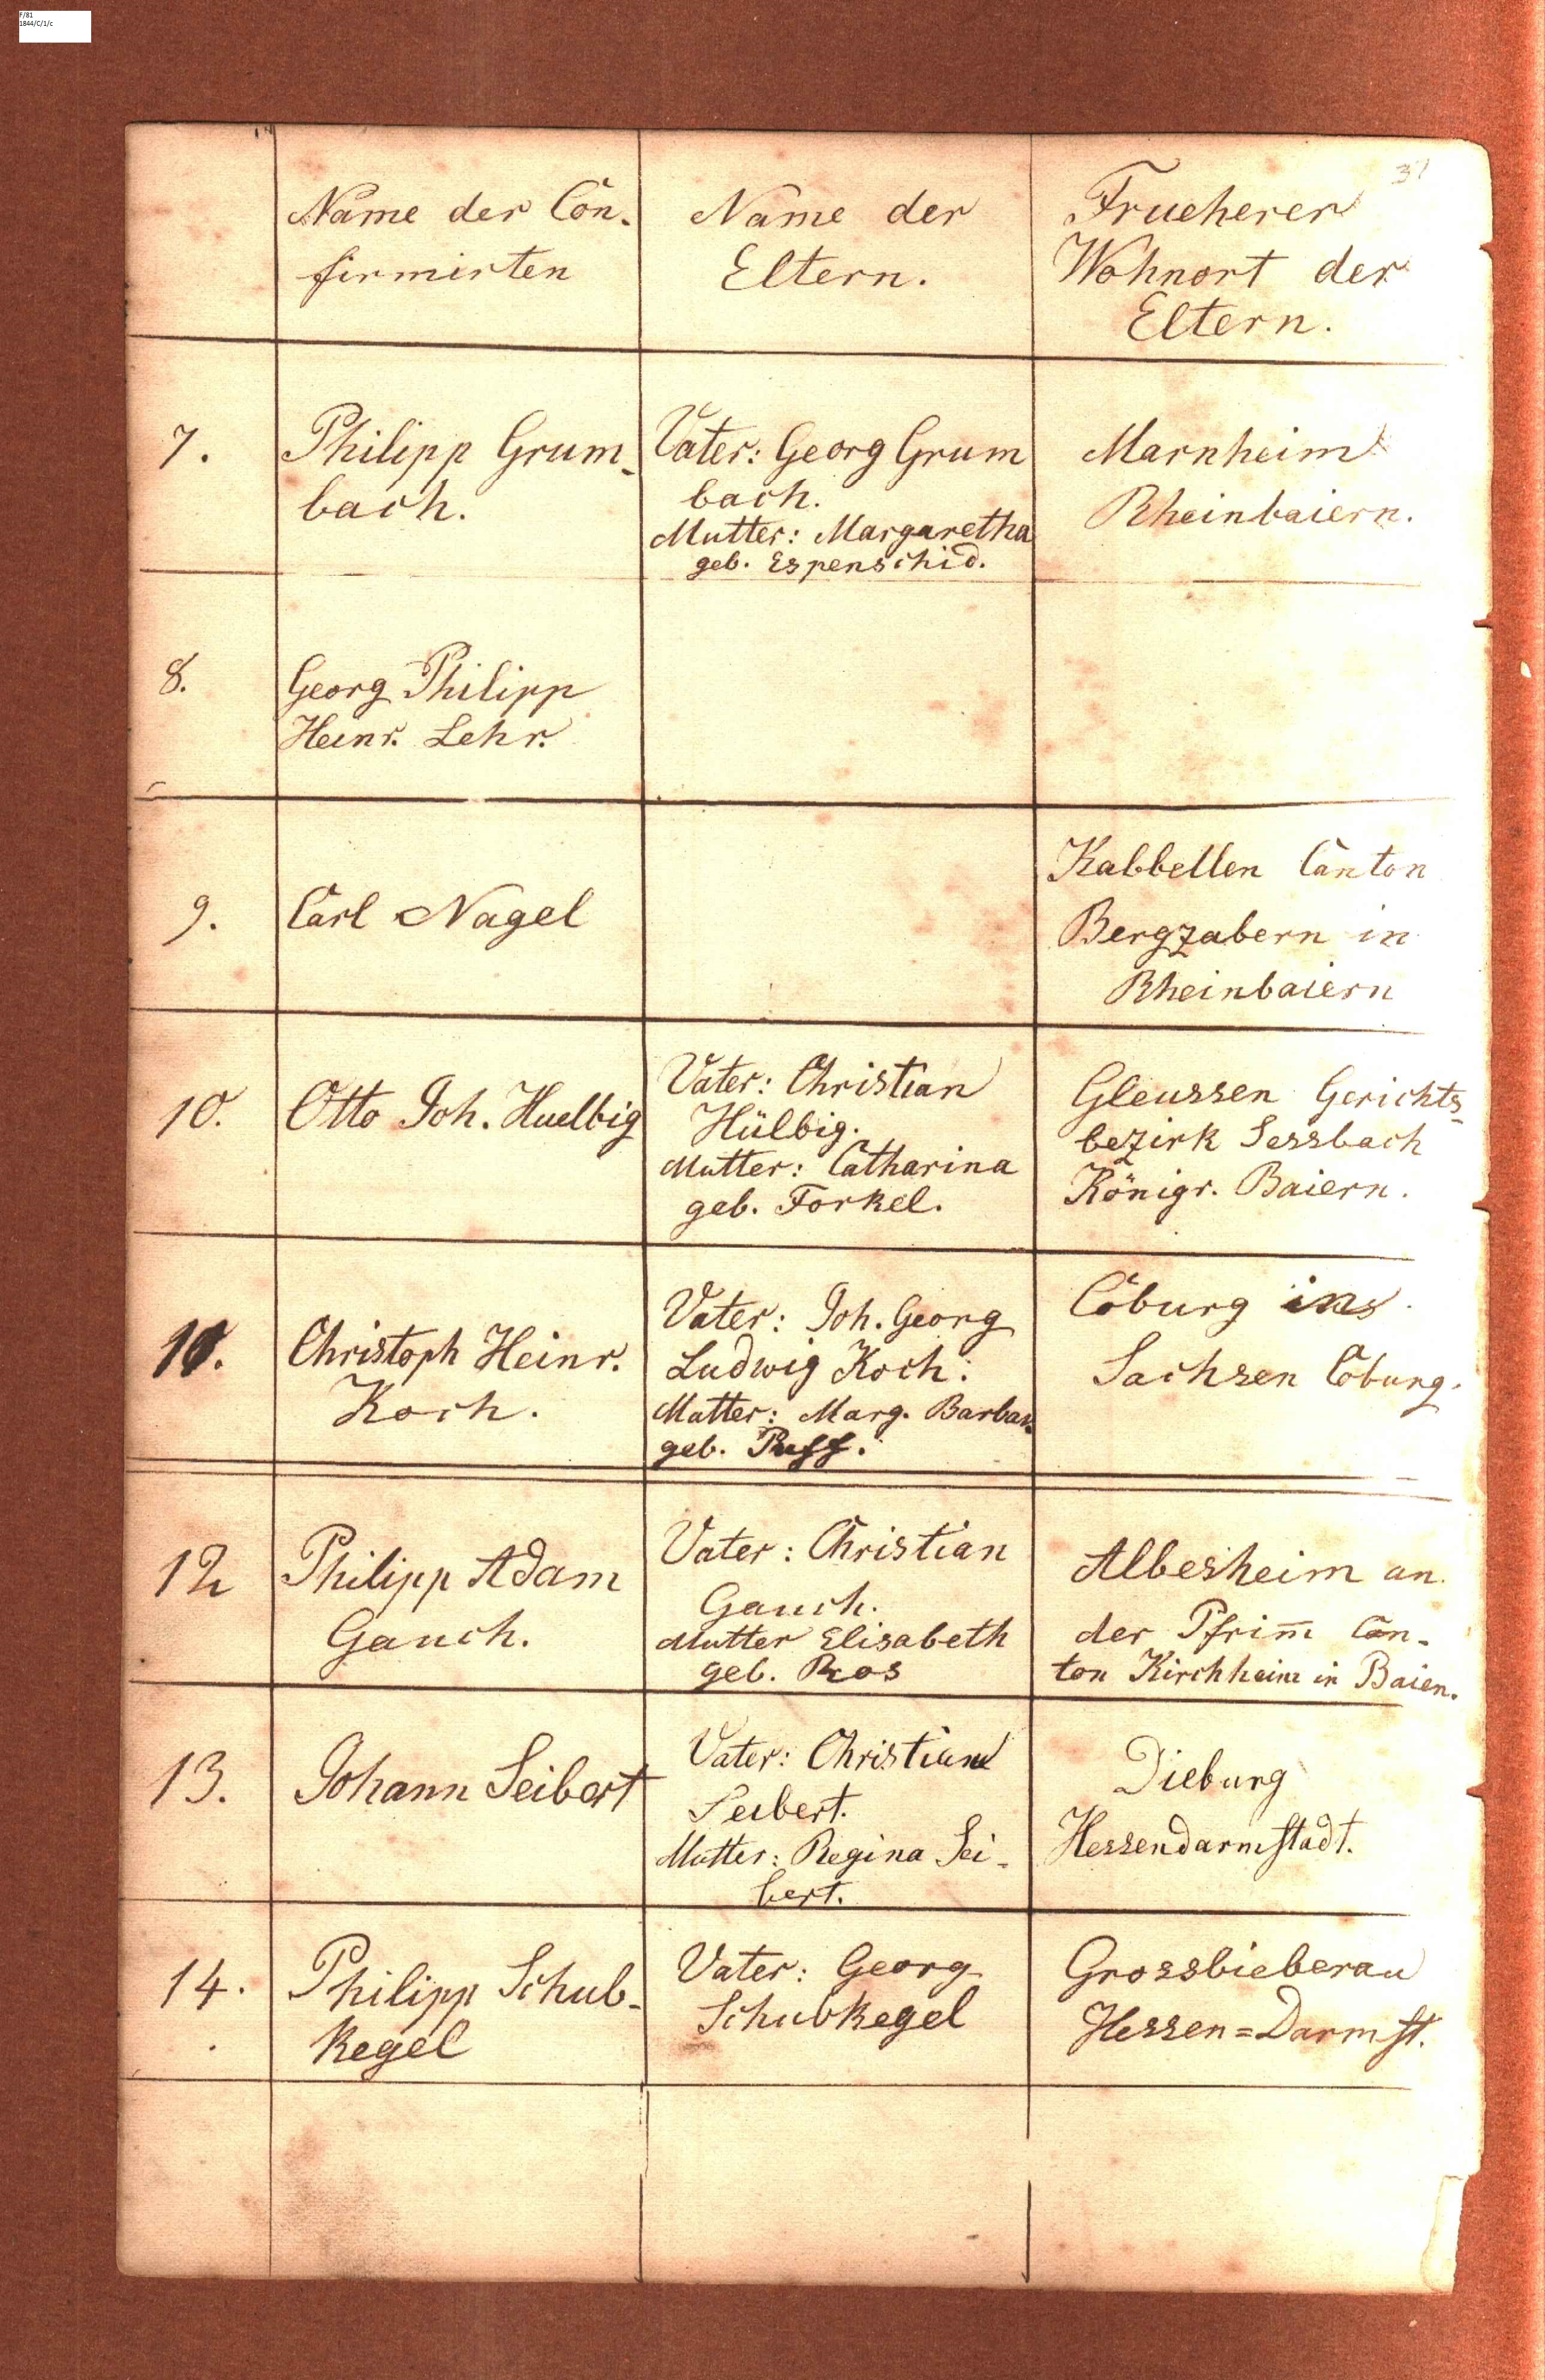 F/81
1844/C/1/c
31
Name der Con-
firmirten
Name der
Eltern.
Frueherer
Wohnort der
Eltern.
7.
Philipp Grum-
bach.
Vater: Georg Grum
bach.
Mutter: Margaretha
geb. Espenschid.
Marnheim
Rheinbaiern.
8.
Georg Philipp
Heinr. Lehr.
9.
Carl Nagel
Kabbellen Canton
Bergzabern in
Rheinbaiern
10.
Otto Joh. Huelbig
Vater: Christian
Hülbig.
Mutter: Catharina
geb. Forkel.
Gleussen Gerichts-
bezirk Sessbach
Königr. Baiern.
11.
Christoph Heinr.
Koch.
Vater: Joh. Georg
Ludwig Koch.
Mutter: Marg. Barbar.
geb. Puff.
Coburg ins
Sachsen Coburg.
12
Philipp Adam
Gauch.
Vater: Christian
Gauch.
Mutter Elisabeth
geb. Ros
Albesheim an
der Pfrim̄ Can-
ton Kirchheim in Baien.
13.
Johann Seibert
Vater: Christian
Seibert.
Mutter: Regina Sei-
bert.
Dieburg
Hessendarmstadt.
14.
Philipp Schub-
kegel
Vater: Georg
Schubkegel
Grossbieberau
Hessen=Darmst.